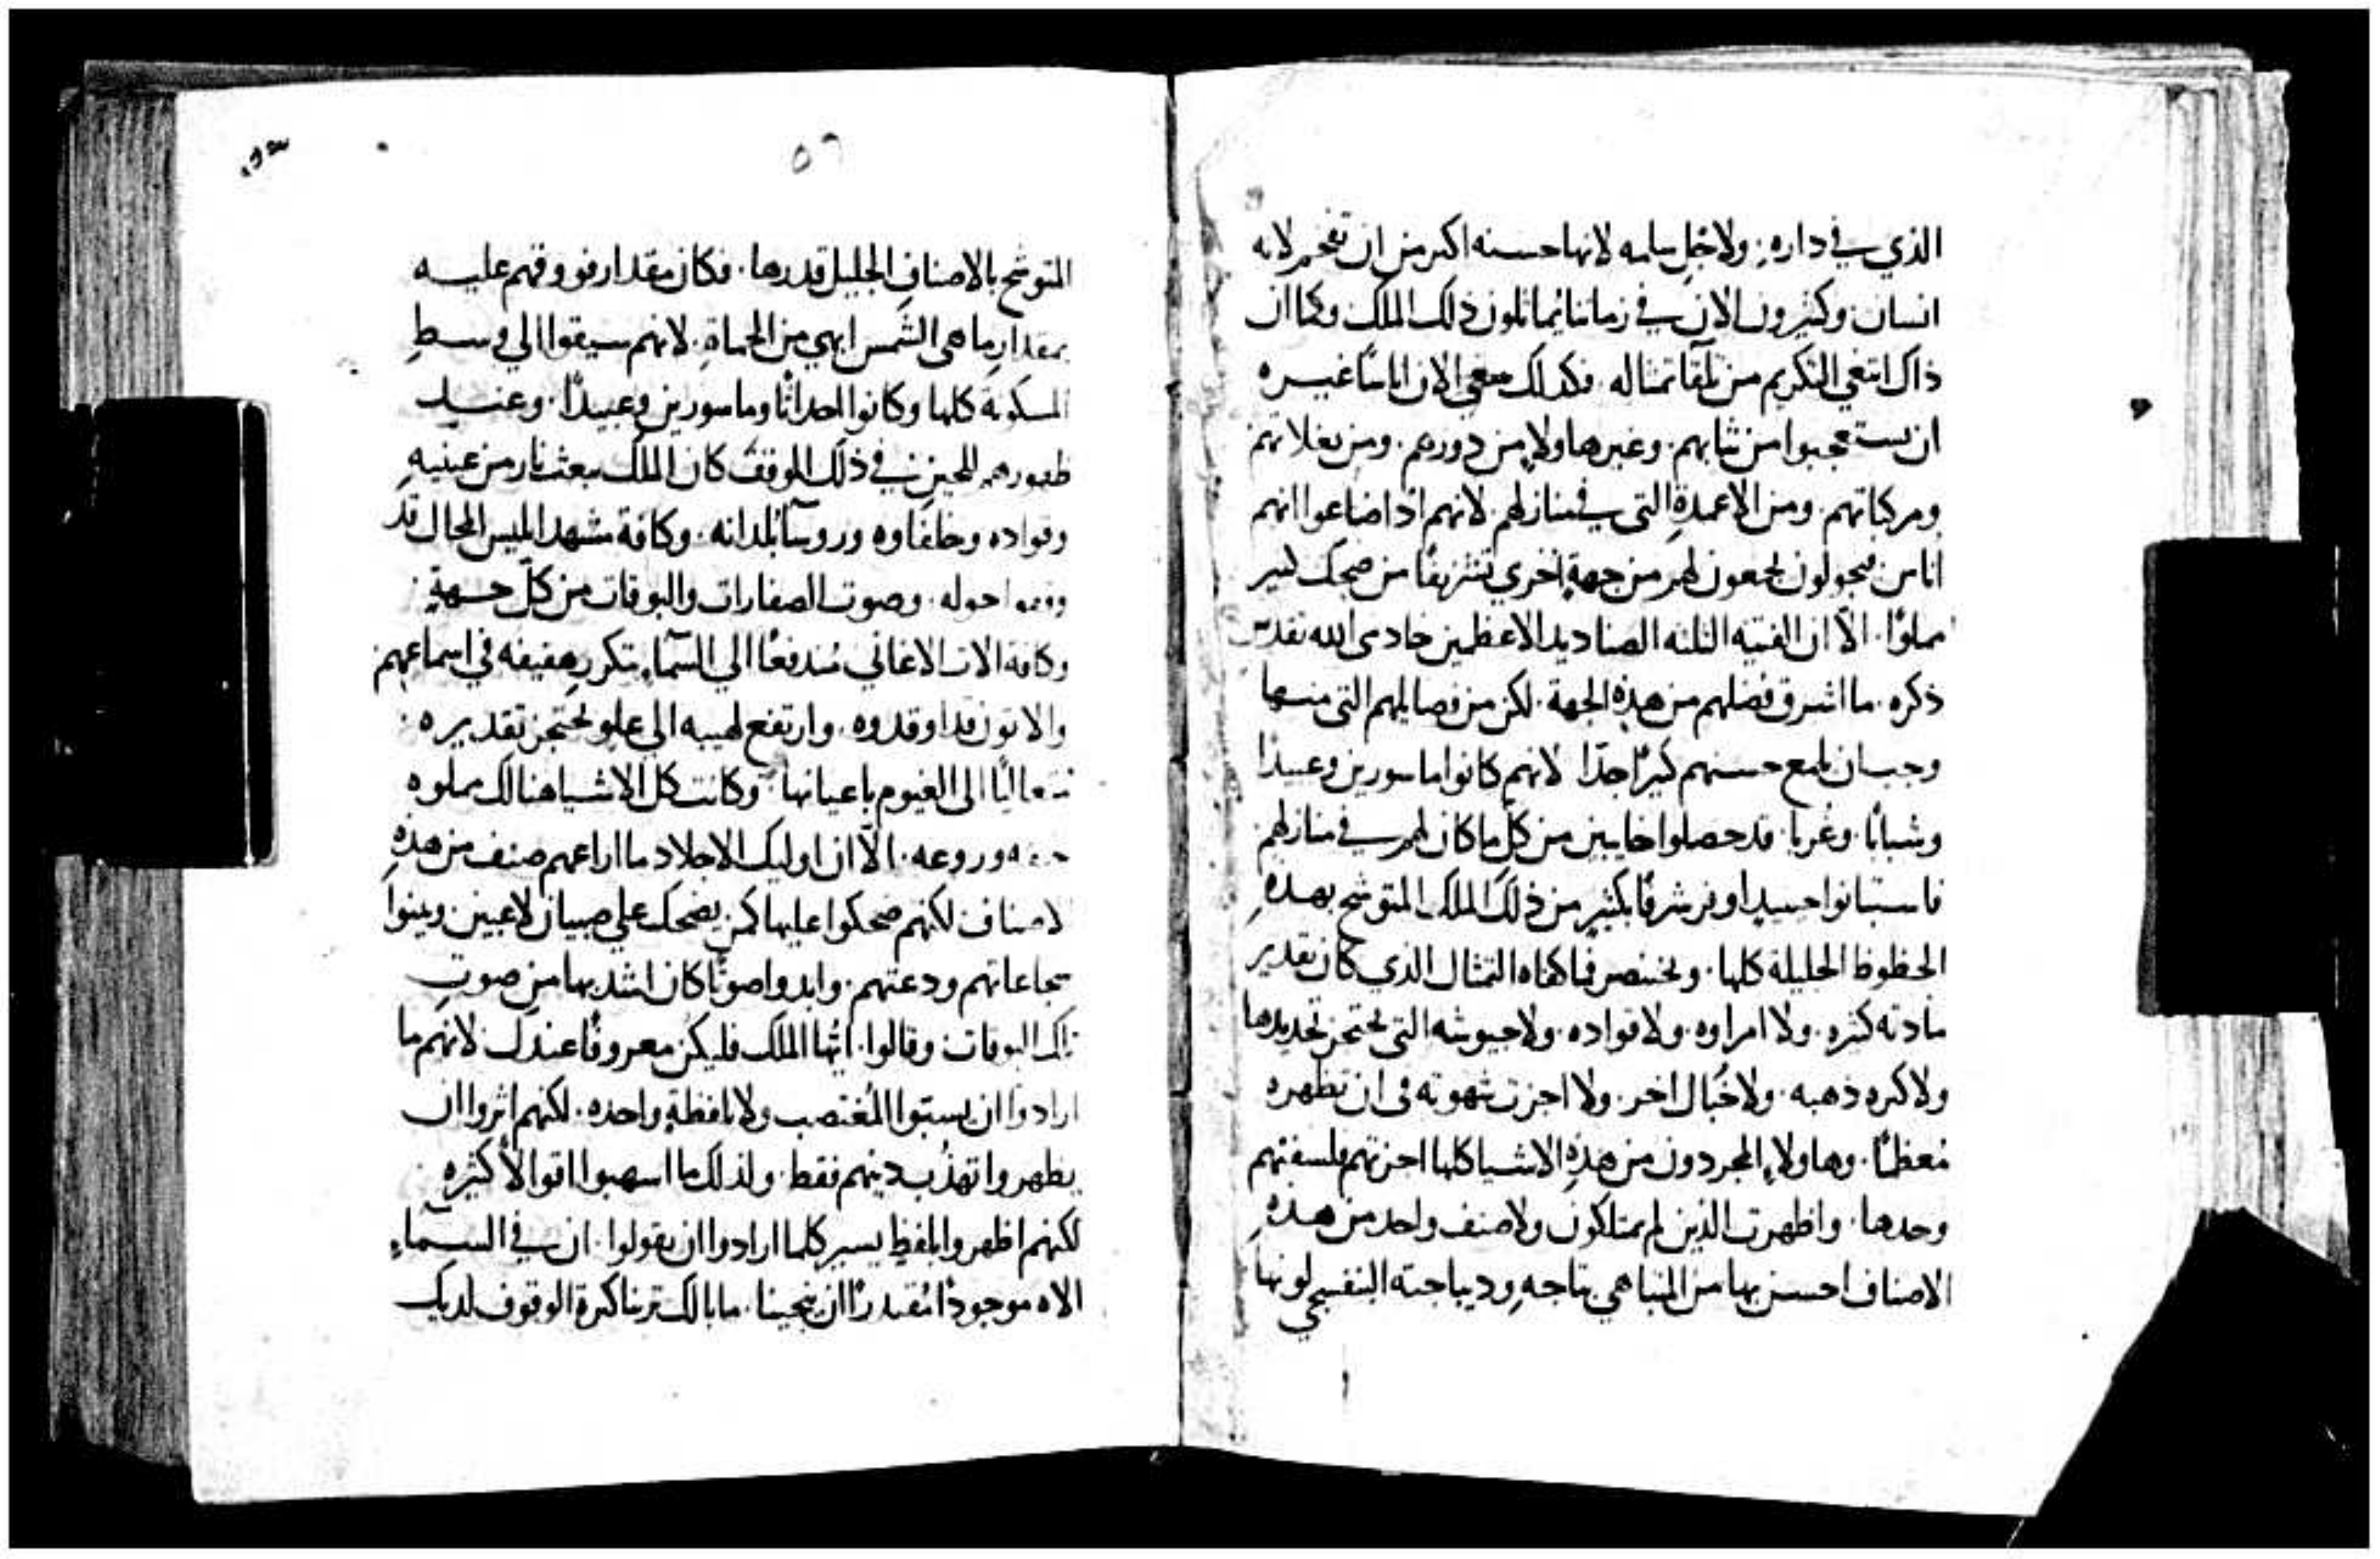 الذي في داره. ولاجل سلمه لانها حسنه اكبر من ان تفخر لانه
انسان وكثيرون الان في زماننا يماثلون ذلك الملك وكما ان
ذاك ابتغي التكريم من تلقا تمثاله. فكذلك يبتغي الان اناسًا غيره
ان يستعجبوا من ثيابهم. وغيرها ولا من دورهم. ومن بغلاتهم
ومركباتهم. ومن الاعمدة التي في منازلهم. لانهم اذ اضاعوا انهم
اناس يجولون يجمعون لهم من جهة اخري تشريفًا من ضحك كثير
مملوًا. الا ان الفتيه الثلثه الصناديد الاعظمين خادمي الله تقدس
ذكره. ما اشرق فضلهم من هذه الجهة. لكن من فضايلهم التي منها
وجب ان يلمع حسنهم كثيرًا جدًا لانهم كانوا ماسورين وعبيدًا
وشبانًا. وغربا. قد حصلوا خايبين من كل ما كان لهم في منازلهم
فاستبانوا حينيذ اوفر شرفًا بكثير من ذلك الملك المتوشح بهذه
الحظوظ الجليلة كلها. ونختصر فما كفاه التمثال الذي كان تقدير
مادته كثيره. ولا امراوه. ولا قواده. ولا جيوشه التي يحتجز تحديدها
ولا كثره ذهبه. ولا خيال اخر. ولا اجزت شهوته في ان تظهره
معظمًا. وهاولاء المجردون من هذه الاشيا كلها اجزتهم فلسفتهم
وحدها. واظهرت الذين لم يمتلكون ولا صنف واحد من هذه
الاصناف احسن بها من المتباهي بتاجه وديباجته البنفسجي لونها
٥٦
المتوشح بالاصناف الجليل قدرها. فكان مقدار فووقهم عليه
بمقدار ما هي الشمس ابهي من الحماة. لانهم سيقوا الي وسط
المسكونة كلها وكانوا احداثًا وماسورين وعبيدًا. وعند
ظهورهم للحين في ذلك الموقف كان الملك يبعث نار من عينيه
وقواده وخلفاوه وروسآ بلدانه. وكافة مشهد ابليس المحال قد
وقفوا حوله. وصوت الصفارات والبوقات من كل جهة
وكافة الات الاغاني مندفعًا الي السمآء. يتكرر هفيفه في اسماعهم
والاتون قد اوقدوه. وارتفع لهيبه الي علو يحتجز تقديره
متعاليًا الى الغيوم باعيانها. وكانت كل الاشيا هنالك مملوه
وروعه. الا ان اوليك الاجلاد ما اراعهم صنف من هذه
الاصناف لكنهم ضحكوا عليها كمن يضحك علي صبيان لاعبين وبينوا
شجاعاتهم ودعتهم. وابدوا صوتًا كان اشد بها من صوت
تلك البوقات وقالوا. ايها الملك فليكن معروفًا عندك لانهم ما
ارادوا ان يسبتوا المغتصب ولا بلفظة واحده. لكنهم اثروا ان
يظهروا تهذب دينهم فقط. ولذلك ما اسهبوا اقوالًا كثيره
لكنهم اظهروا بلفظ يسير كلما ارادوا ان يقولوا. ان في السماء
الاه موجودًا مقتدرًا ان ينجينا. ما بالك ترينا كثرة الوقوف لديك